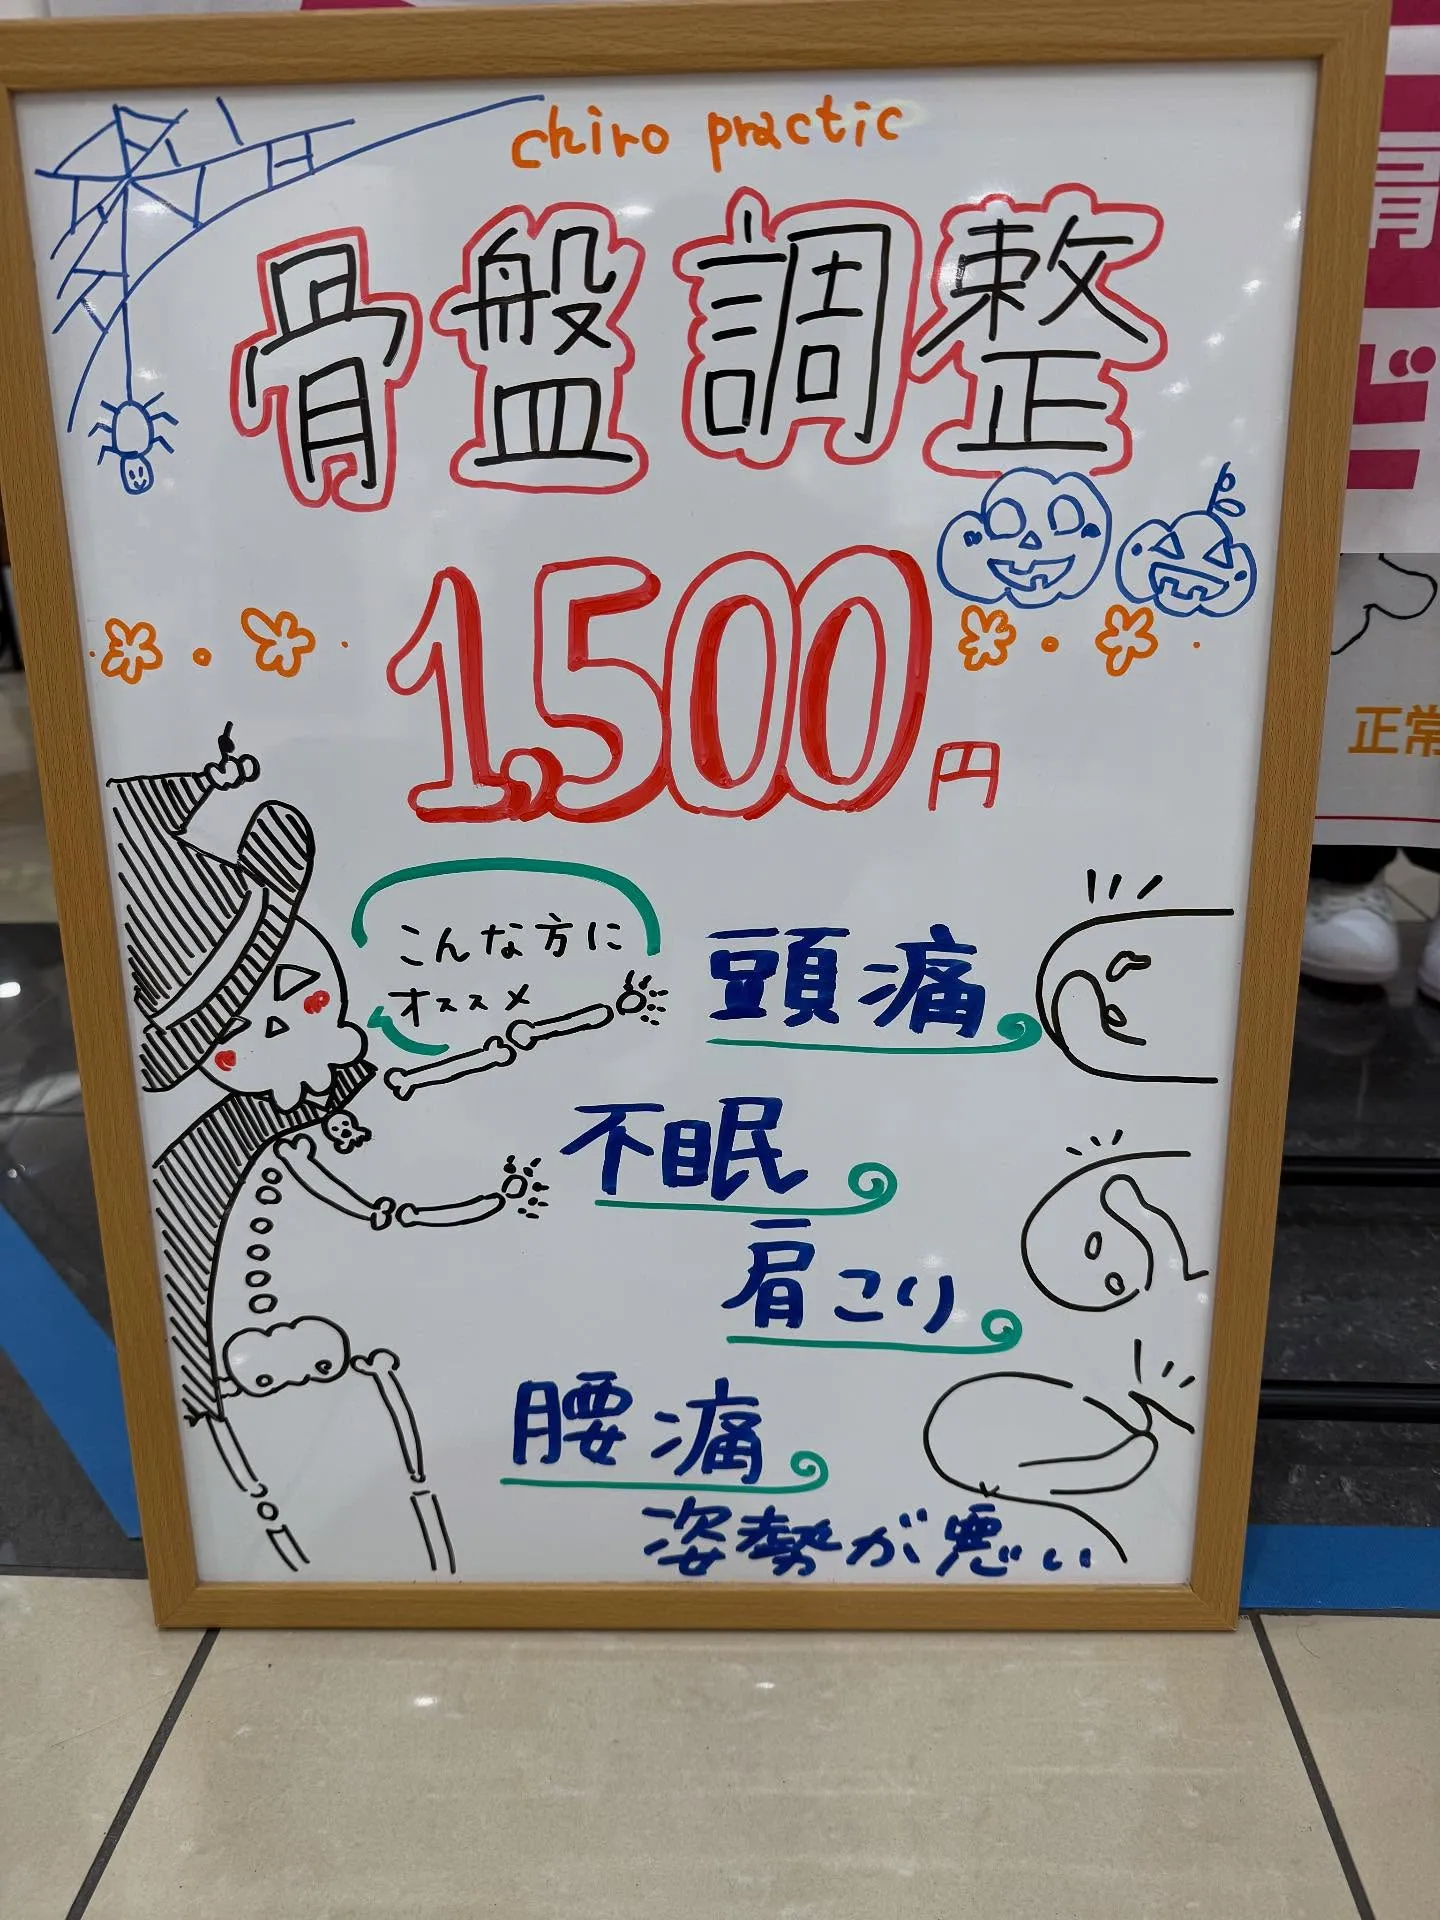 chiro practic
骨盤調整
1,500円
こんな方に
オススメ
頭痛
不眠
肩こり
腰痛
姿勢が悪い
正常